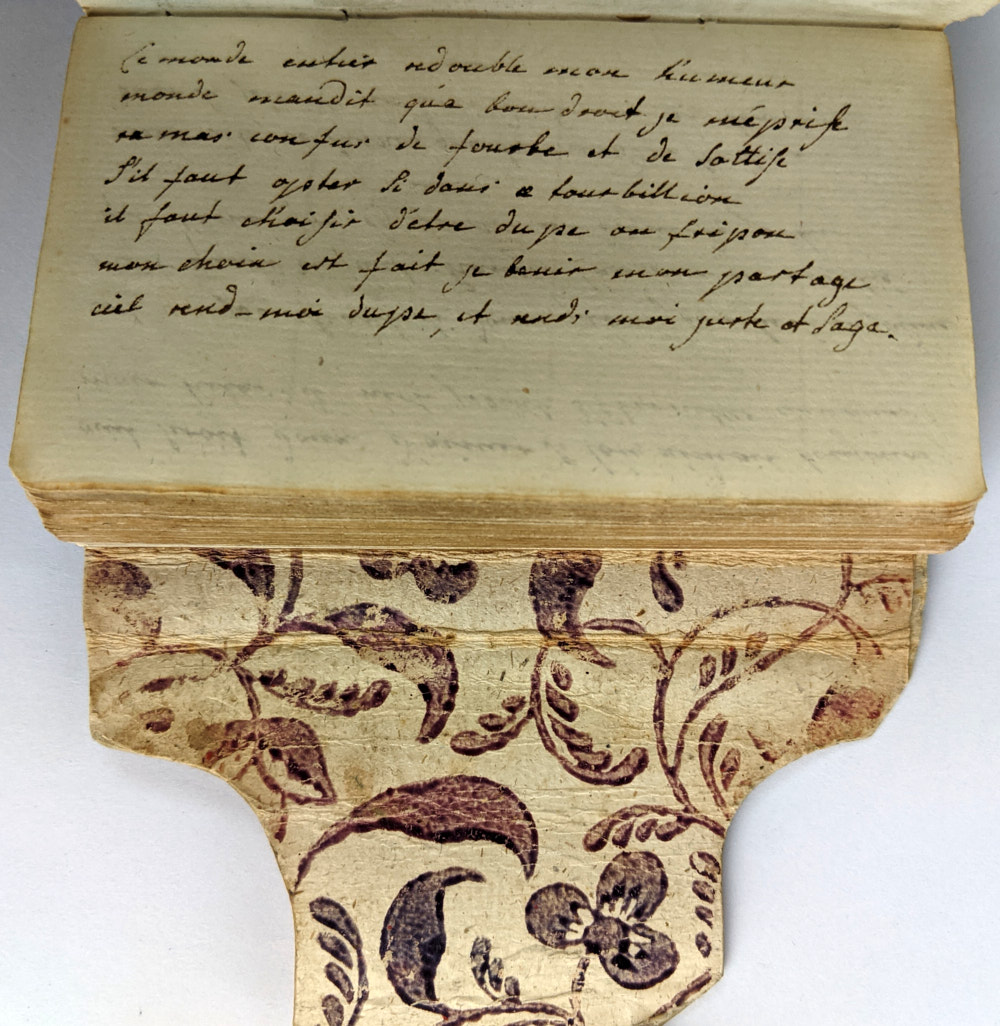 Le monde entier redouble mon humeur
monde maudit qu'a bon droit je méprise
ramas confus de fourbe et de sottise
S'il faut opter Si dans ce tourbillion
il faut choisir d'etre dupe ou fripon
mon choix est fait je benir mon partage
ciel rend-moi dupe, et rends moi juste et Sage.